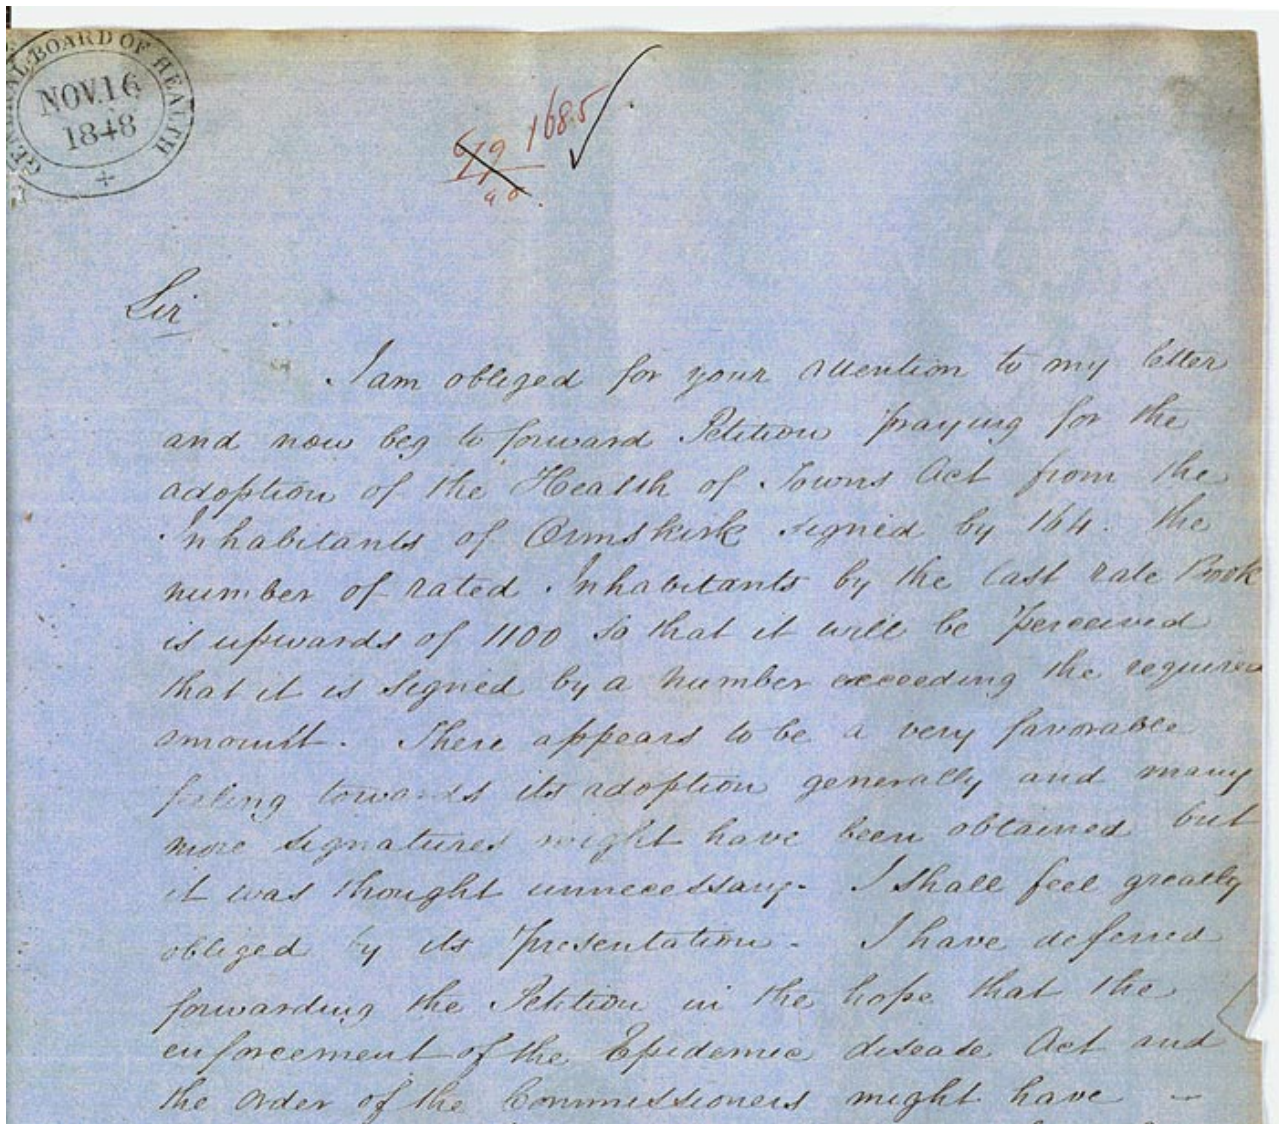 GENERAL BOARD OF HEALTH
NOV. 16
1848
1685
Sir
I am obliged for your attention to my letter
and now beg to forward Petition praying for the
adoption of the Health of Towns Act from the
Inhabitants of Ormskirk signed by 164. the
number of rated Inhabitants by the last rate Book
is upwards of 1100 so that it will be perceived
that it is signed by a number exceeding the required
amount. There appears to be a very favorable
feeling towards its adoption generally and many
more signatures might have been obtained but
it was thought unnecessary. I shall feel greatly
obliged by its presentation. I have deferred
forwarding the Petition in the hope that the
enforcement of the Epidemic disease Act and
the order of the Commissioners might have